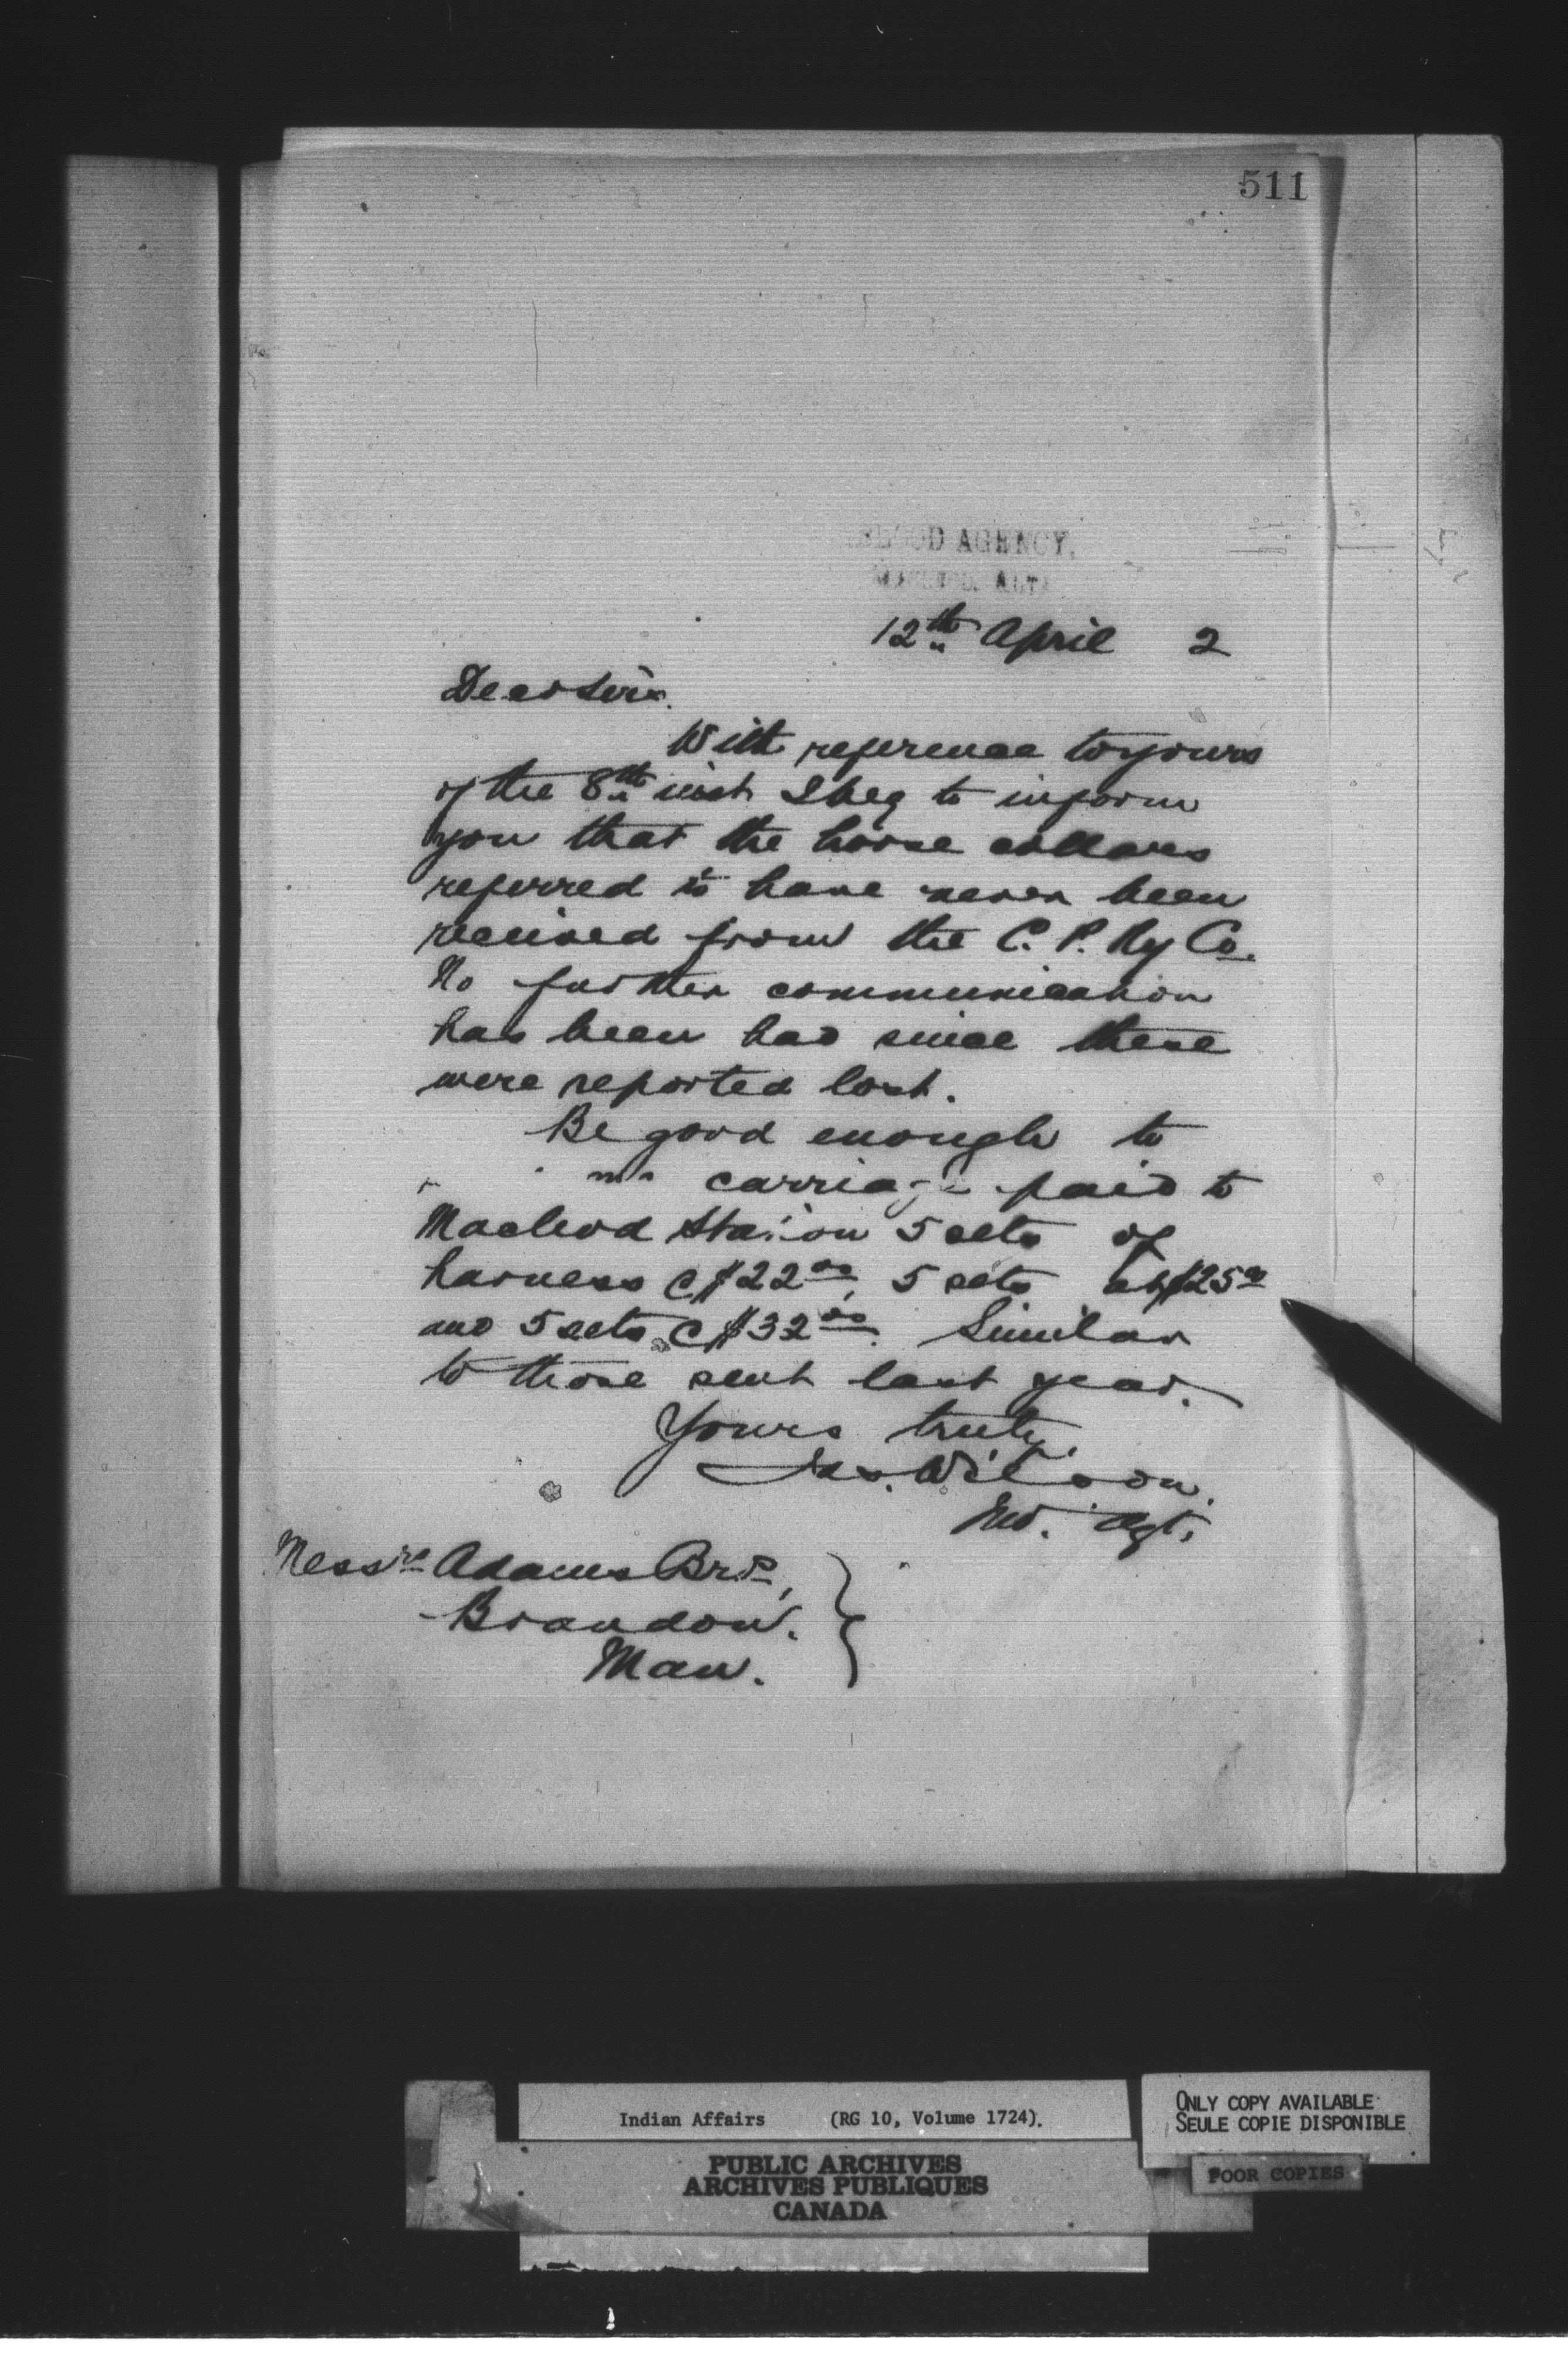 511
BLOOD AGENCY,
MACLEOD. ALTA
12th April 2
Dear Sirs.
With reference to yours
of the 8th inst I beg to inform
you that the horse collars
referred to have never been
received from the C. P. Ry Co.
No further communication
has been had since these
were reported lost.
Be good enough to
carriage paid to
Macleod Station 5 sets of
harness @ $22.00, 5 sets at $25.00
and 5 sets @ $32.00. Similar
to those sent last year.
Yours truly,
Jas. Wilson.
Ind. Agt.
Messrs Adams Bros,
Brandon.
Man.
Indian Affairs (RG 10, Volume 1724).
PUBLIC ARCHIVES
ARCHIVES PUBLIQUES
CANADA
ONLY COPY AVAILABLE
SEULE COPIE DISPONIBLE
POOR COPIES